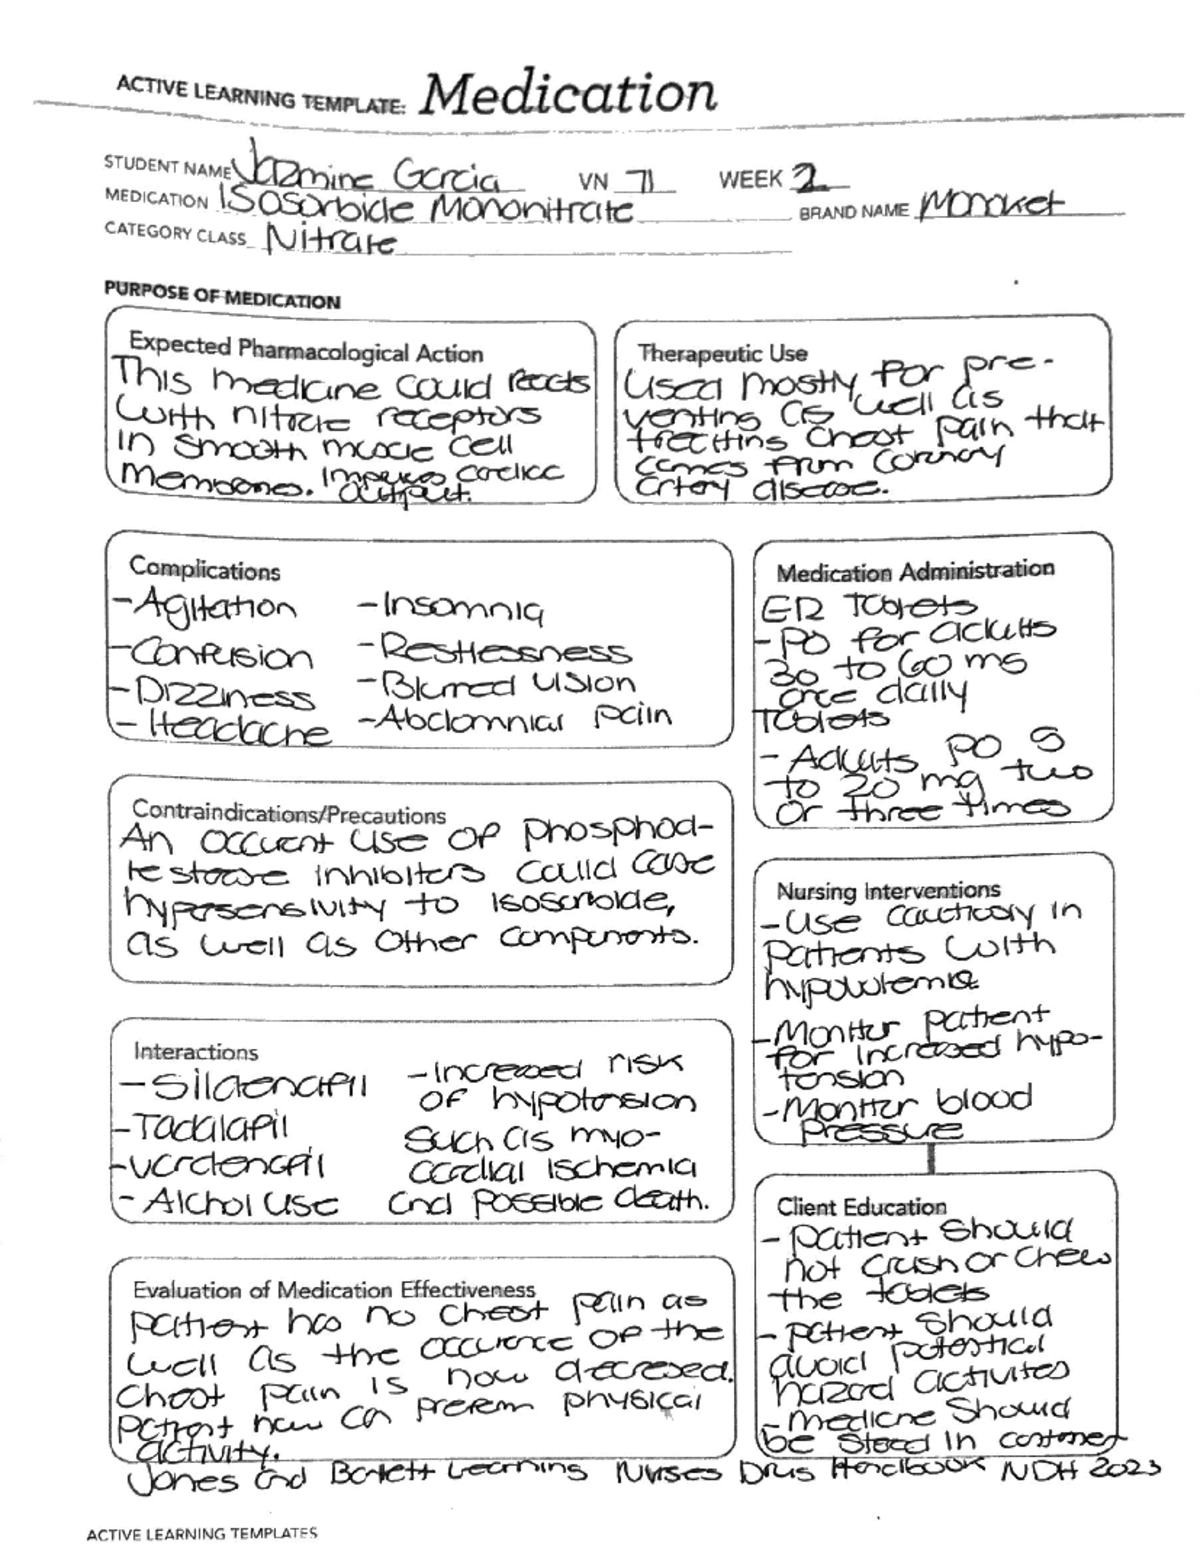 ACTIVE LEARNING TEMPLATE: Medication
STUDENT NAME Jazmine Garcia VN 71 WEEK 2
MEDICATION Isosorbide Mononitrate BRAND NAME Monoket
CATEGORY CLASS Nitrate
PURPOSE OF MEDICATION
Expected Pharmacological Action
This medicine could reacts
with nitrate receptors
in smooth muscle cell
membranes. Improves cardiac
output.
Therapeutic Use
Used mostly for pre-
venting as well as
treating chest pain that
comes from coronary
artery disease.
Complications
- Agitation
- Confusion
- Dizziness
- Headache
- Insomnia
- Restlessness
- Blurred vision
- Abdomnial pain
Medication Administration
ER Tablets
- PO for adults
30 to 60 mg
once daily
Tablets
- Adults PO 5
to 20 mg two
or three times
Contraindications/Precautions
An occurent use of phosphod-
testerase inhibiters could case
hypersensivity to isosorbide,
as well as other components.
Nursing Interventions
- Use cautiously in
patients with
hypovolemia
- Moniter patient
for increased hypo-
tension
- Moniter blood
pressure
Interactions
- Sildenafil
- Tadalafil
- Vardenafil
- Alchol use
- Increased risk
of hypotension
such as myo-
cardial ischemia
and possible death.
Client Education
- patient should
not crush or chew
the tablets
- patient should
avoid potential
hazard activites
- medicine should
be stored in
Evaluation of Medication Effectiveness
patient has no chest pain as
well as the occurence of the
chest pain is now decreased.
patient now can preform physical
activity.
Jones and Bartlett Learning Nurses Drug Handbook NDH 2023
ACTIVE LEARNING TEMPLATES